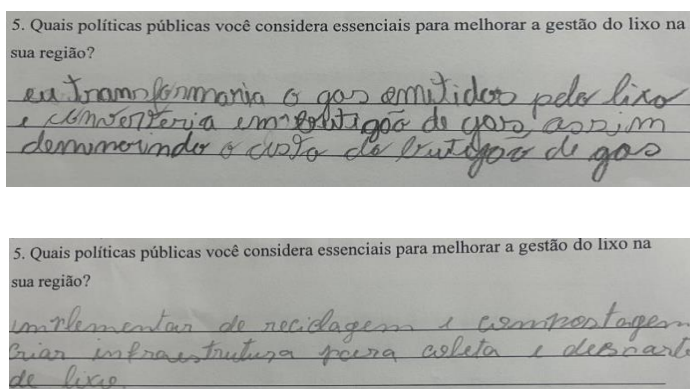 5. Quais políticas públicas você considera essenciais para melhorar a gestão do lixo na
sua região?
eu transformaria o gas emitidos pelo lixo
e converteria em botigão de gas, assim
demenuindo o custo do butigão de gas
5. Quais políticas públicas você considera essenciais para melhorar a gestão do lixo na
sua região?
implementar de reciclagem e compostagem
criar infraestrutura para coleta e descarte
de lixo.